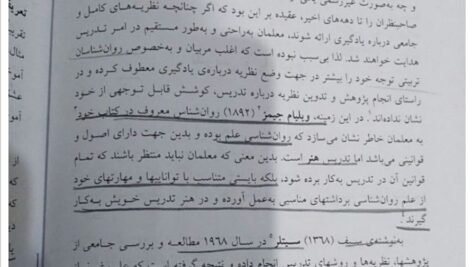 و چه به‌صورت غیررسمی
صاحبنظران را تا دهه‌های اخیر، عقیده بر این بود که اگر چنانچه نظریه‌های کامل و
جامعی درباره یادگیری ارائه شوند، معلمان به‌راحتی و به‌طور مستقیم در امر تدریس
هدایت خواهند شد. لذا بی‌سبب نبوده است که اغلب مربیان و به‌خصوص روان‌شناسان
تربیتی توجه خود را بیشتر در جهت وضع نظریه درباره‌ی یادگیری معطوف کرده و در
راستای انجام پژوهش و تدوین نظریه درباره تدریس، کوشش قابل توجهی از خود
نشان نداده‌اند. در این زمینه، ویلیام جیمز (۱۸۹۲) روان‌شناس معروف در کتاب خود
به معلمان خاطر نشان می‌سازد که روان‌شناسی علم بوده و بدین جهت دارای اصول و
قوانینی می‌باشد اما تدریس هنر است. بدین معنی که معلمان نباید منتظر باشند که تمام
قوانین آن در تدریس به‌کار برده شود، بلکه بایستی متناسب با تواناییها و مهارتهای خود
از علم روان‌شناسی برداشتهای مناسبی به‌عمل آورده و در هنر تدریس خویش به‌کار
گیرند.
به‌نوشته‌ی سیف (۱۳۶۸) سیتلر در سال ۱۹۶۸ مطالعه و بررسی جامعی از
پژوهشها، نظریه‌ها و روشهای تدریس انجام داده و نتیجه گرفته است که
تعری
مثال
آموز